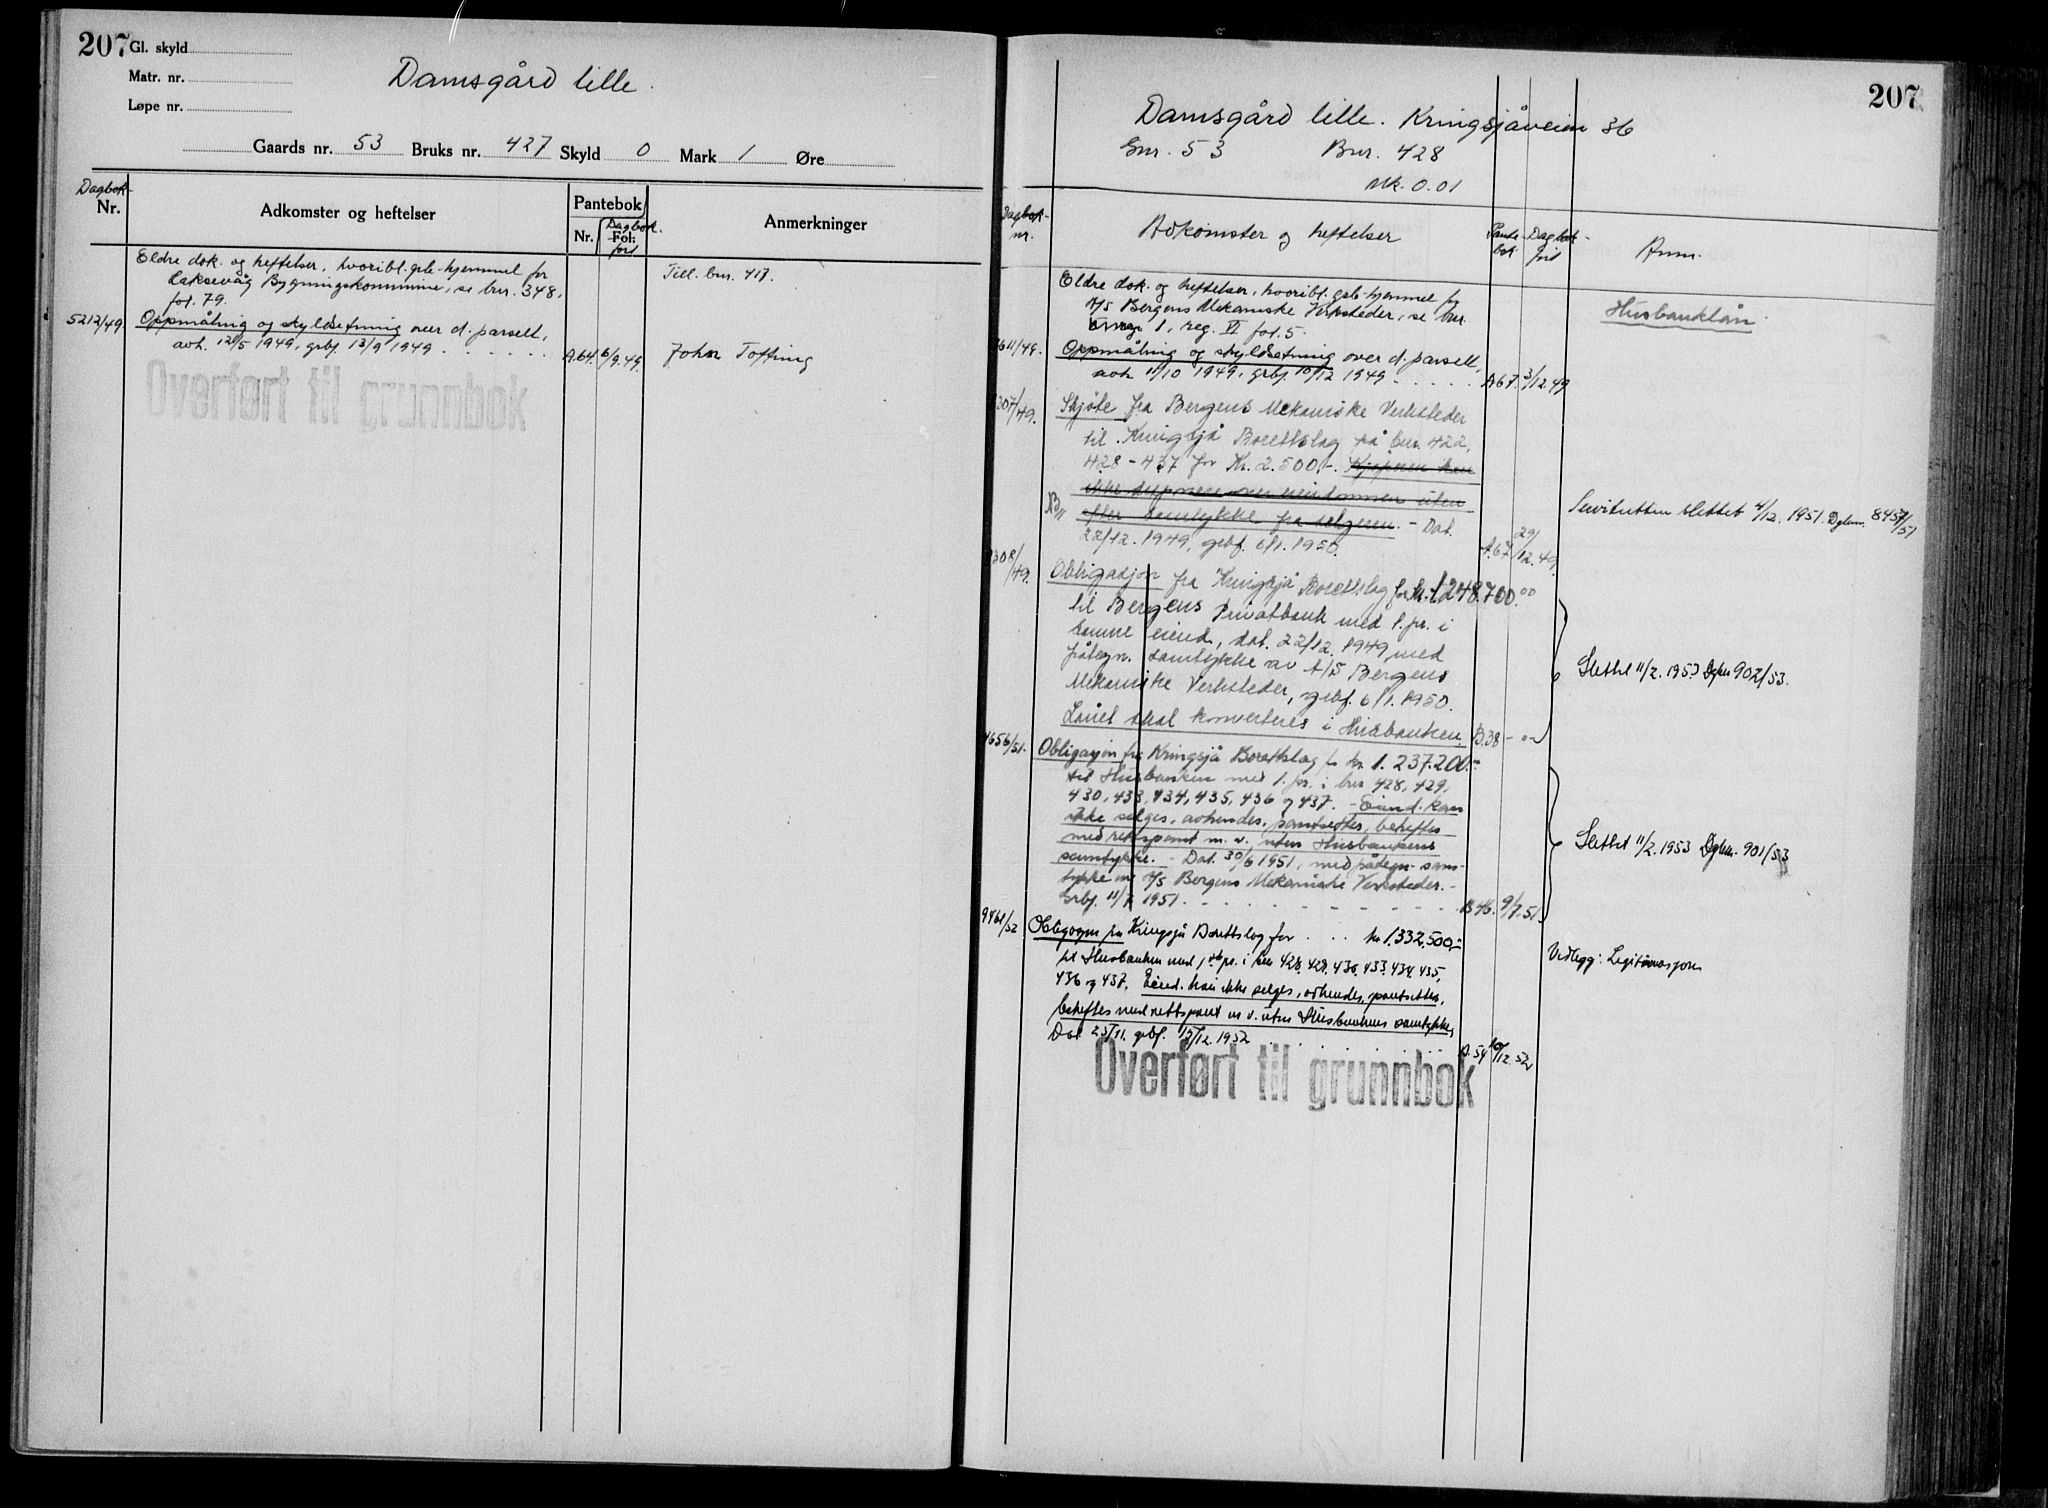 207 Gl. skyld
Matr. nr.
Løpe nr.
Damsgård lille.
Gaards nr. 53 Bruks nr. 427 Skyld 0 Mark 1 Øre
Dagbok-
Nr.
Adkomster og heftelser
Pantebok
Nr.
Dagbok.
Fol.
ført
Anmerkninger
Eldre dok. og heftelser, hvoribl. grb-hjemmel for
Laksevåg Bygningskommune, se bnr. 348,
fol. 79.
Till. bnr. 417.
5212/49 Oppmåling og skyldsetning over d. parsell,
avh. 12/5 1949, grbf. 13/9 1949 . . . . . . A.64. 6/9.49. John Tofting
Overført til grunnbok
207
Damsgård lille. Kringsjåveien 36
Gnr. 53 Bnr. 428
Mk. 0.01
Dagbok-
nr.
Adkomster og heftelser
Pante-
bok
Dagbok-
ført
Anm.
Eldre dok. og heftelser, hvoribl. grb-hjemmel for
A/S Bergens Mekaniske Verksteder, se bnr.
1, reg. VI fol. 5.
Husbanklån
7611/49. Oppmåling og skyldsetning over d. parsell,
avh 11/10 1949, grbf. 10/12 1949 . . . . . A 67. 3/12.49
307/49. Skjøte fra Bergens Mekaniske Verksteder
til Kringsjå Borettslag på bnr. 422,
428 - 437 for Kr. 2.500.-. Kjøperen kan
ikke disponere over eiendommen uten
efter samtykke fra selgeren. - Dat.
22/12. 1949, grbf. 6/1. 1950. A.67 29/12.49.
Servitutten slettet 4/12. 1951. Dgbnr. 8457/51
308/49. Obligasjon fra "Kringsjå" Borettslag for kr. 1.248.700.00
til Bergens Privatbank med 1. pr. i
samme eiend., dat. 22/12. 1949, med
påtegn. samtykke av A/S Bergens
Mekaniske Verksteder, grbf. 6/1. 1950.
Lånet skal konverteres i Husbanken. B.38 - " -
Slettet 11/2. 1953 Dgbnr 902/53.
4656/51. Obligasjon fra Kringsjå Borettslag for kr. 1.237.200.-
til Husbanken med 1. pr. i bnr 428, 429,
430, 433, 434, 435, 436 og 437. - Eiend. kan
ikke selges, avhendes, pantsettes, beheftes
med rettspant m. v. uten Husbankens
samtykke. - Dat. 30/6 1951, med pådegn. sam-
tykke av A/S Bergens Mekaniske Verksteder. -
Grbf. 11/7 1951. - - - - - - - - B 46. 9/7.51.
Slettet 11/2. 1953 Dgbnr. 901/53
9461/52 Obligasjon fra Kringsjå Borettslag for . . . kr 1.332.500,-
til Husbanken med 1ste pr. i bnr 428, 429, 430, 433, 434, 435,
436 og 437. Eiend. kan ikke selges, avhendes, pantsettes,
beheftes med rettspant m v. uten Husbankens samtykke,
Dat 25/11. grbf. 15/12. 1952 . . . . . . . 12.52
Vedlegg: Legitimasjon
Overført til grunnbok